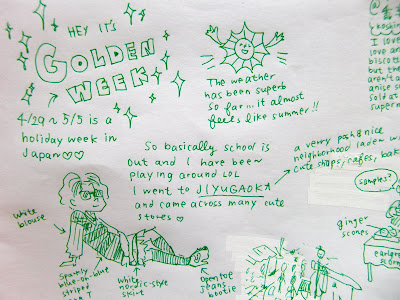 HEY IT'S
GOLDEN
WEEK
4/29 ~ 5/5 is a
holiday week in
Japan♡♡
The weather
has been superb
so far...it almost
feels like summer!!
So basically school is
out and I have been
playing around LOL
I went to JIYUGAOKA
and came across many cute
stores ♡
a very posh & nice
neighborhood laden w/
cute shops, cafes, bak
I love
love an
biscots
but th
aren't
anise s
sold at
superm
samples?
ginger
scones
earlgre
White
blouse
Sparkly
blue-on-blue
striped
white
nordic-style
skirt
Opentoe
jeans
bootie